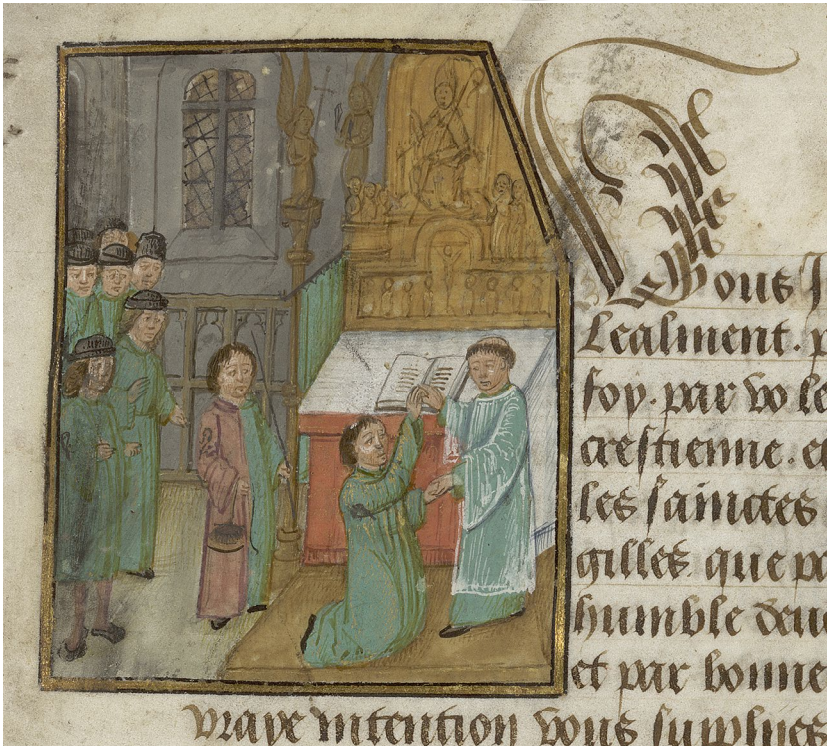 Vous J
Lealment. p
foy. par vo le
crestienne. et
les sainctes
gilles. que pa
humble deuo
et par bonne
vraye intention vous supplies